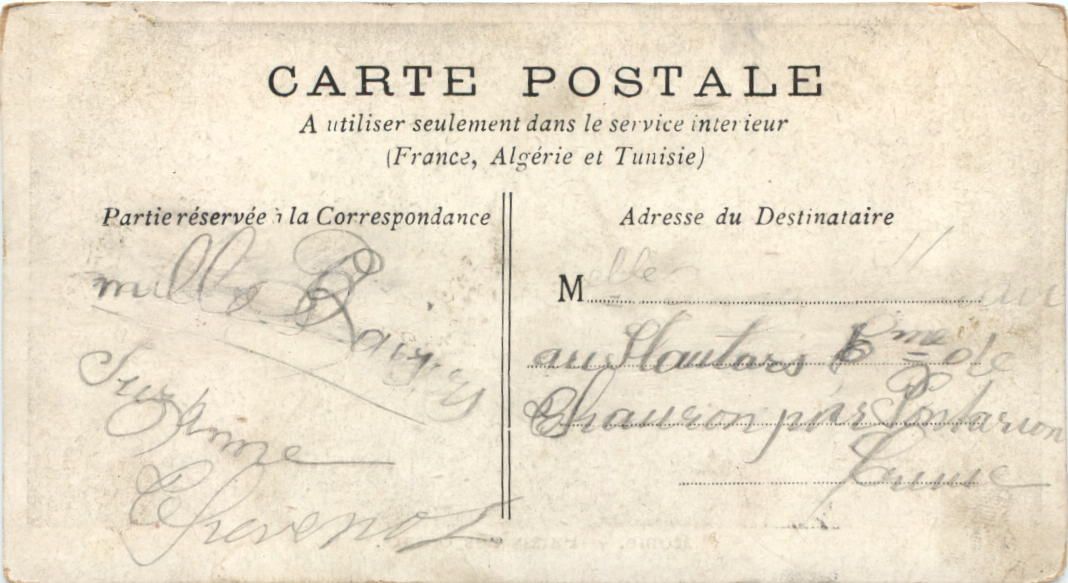 CARTE POSTALE
A utiliser seulement dans le service interieur
(France, Algérie et Tunisie)
Partie réservée à la Correspondance
mille Baisers
Suzanne
Thevenot
Adresse du Destinataire
Melle
au Cme de
Chauron par Pontarion
Creuse